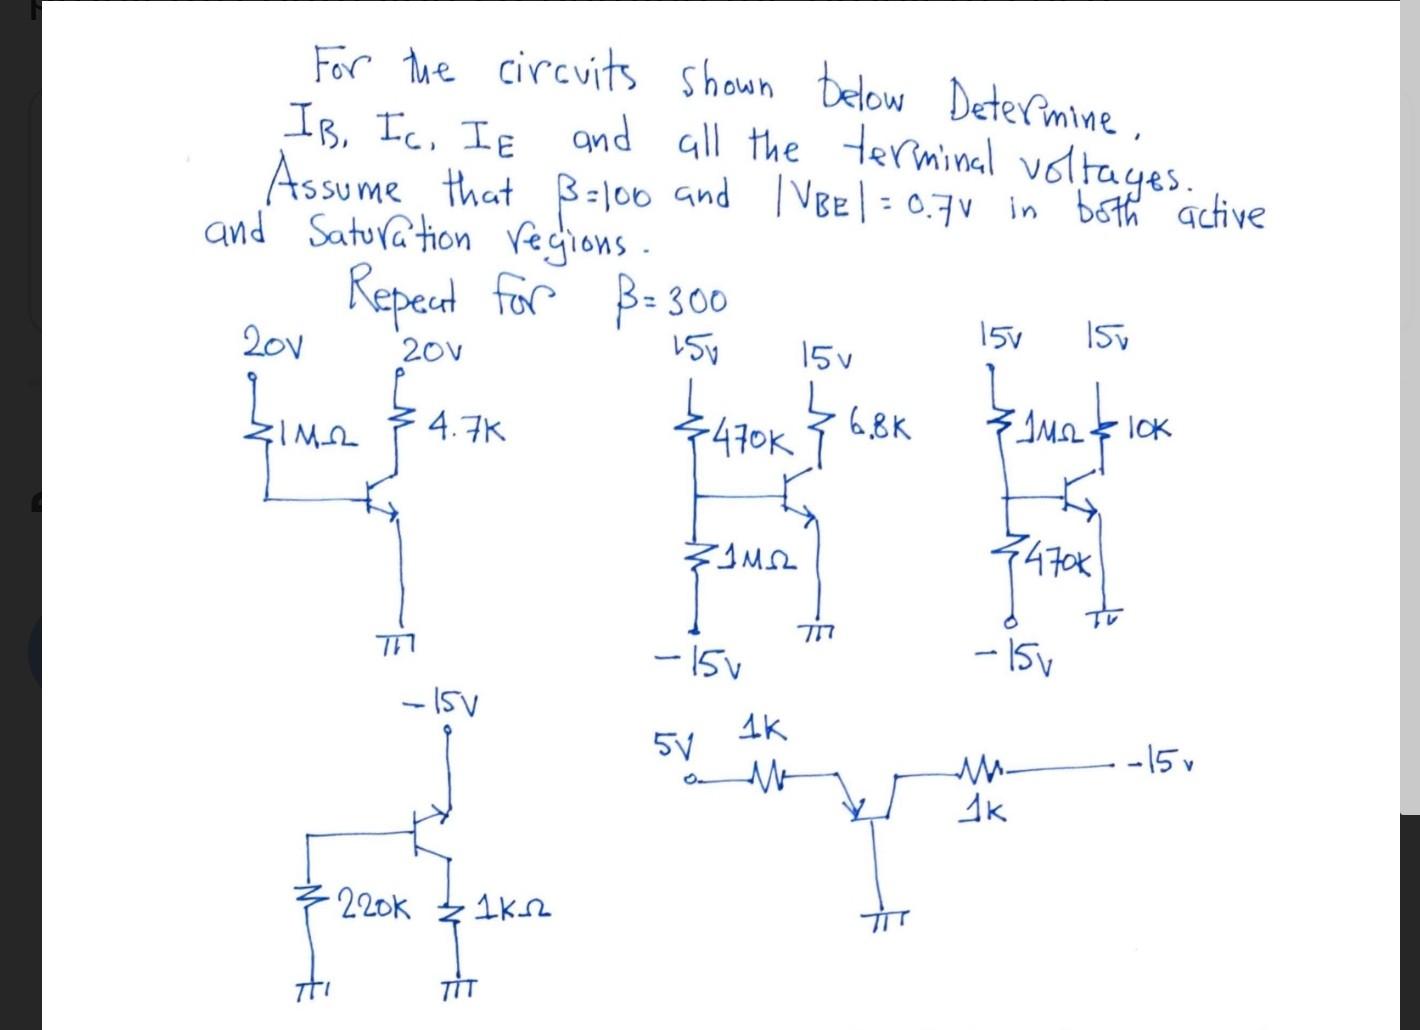 For the circuits shown below Determine,
IB, IC, IE and all the terminal voltages.
Assume that β=100 and |VBE| = 0.7V in both active
and Saturation regions.
Repeat for β= 300
20V 20V
1MΩ 4.7K
15V 15V
470K 6.8K
1MΩ
-15V
15V 15V
1MΩ 10K
470K
-15V
-15V
220K 1KΩ
5V 1K
-15V
1K